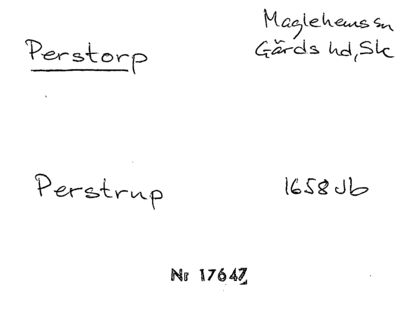 Perstorp
Maglehems sn
Gärds hd, Sk
Perstrup
1658 Jb
Nr 17647